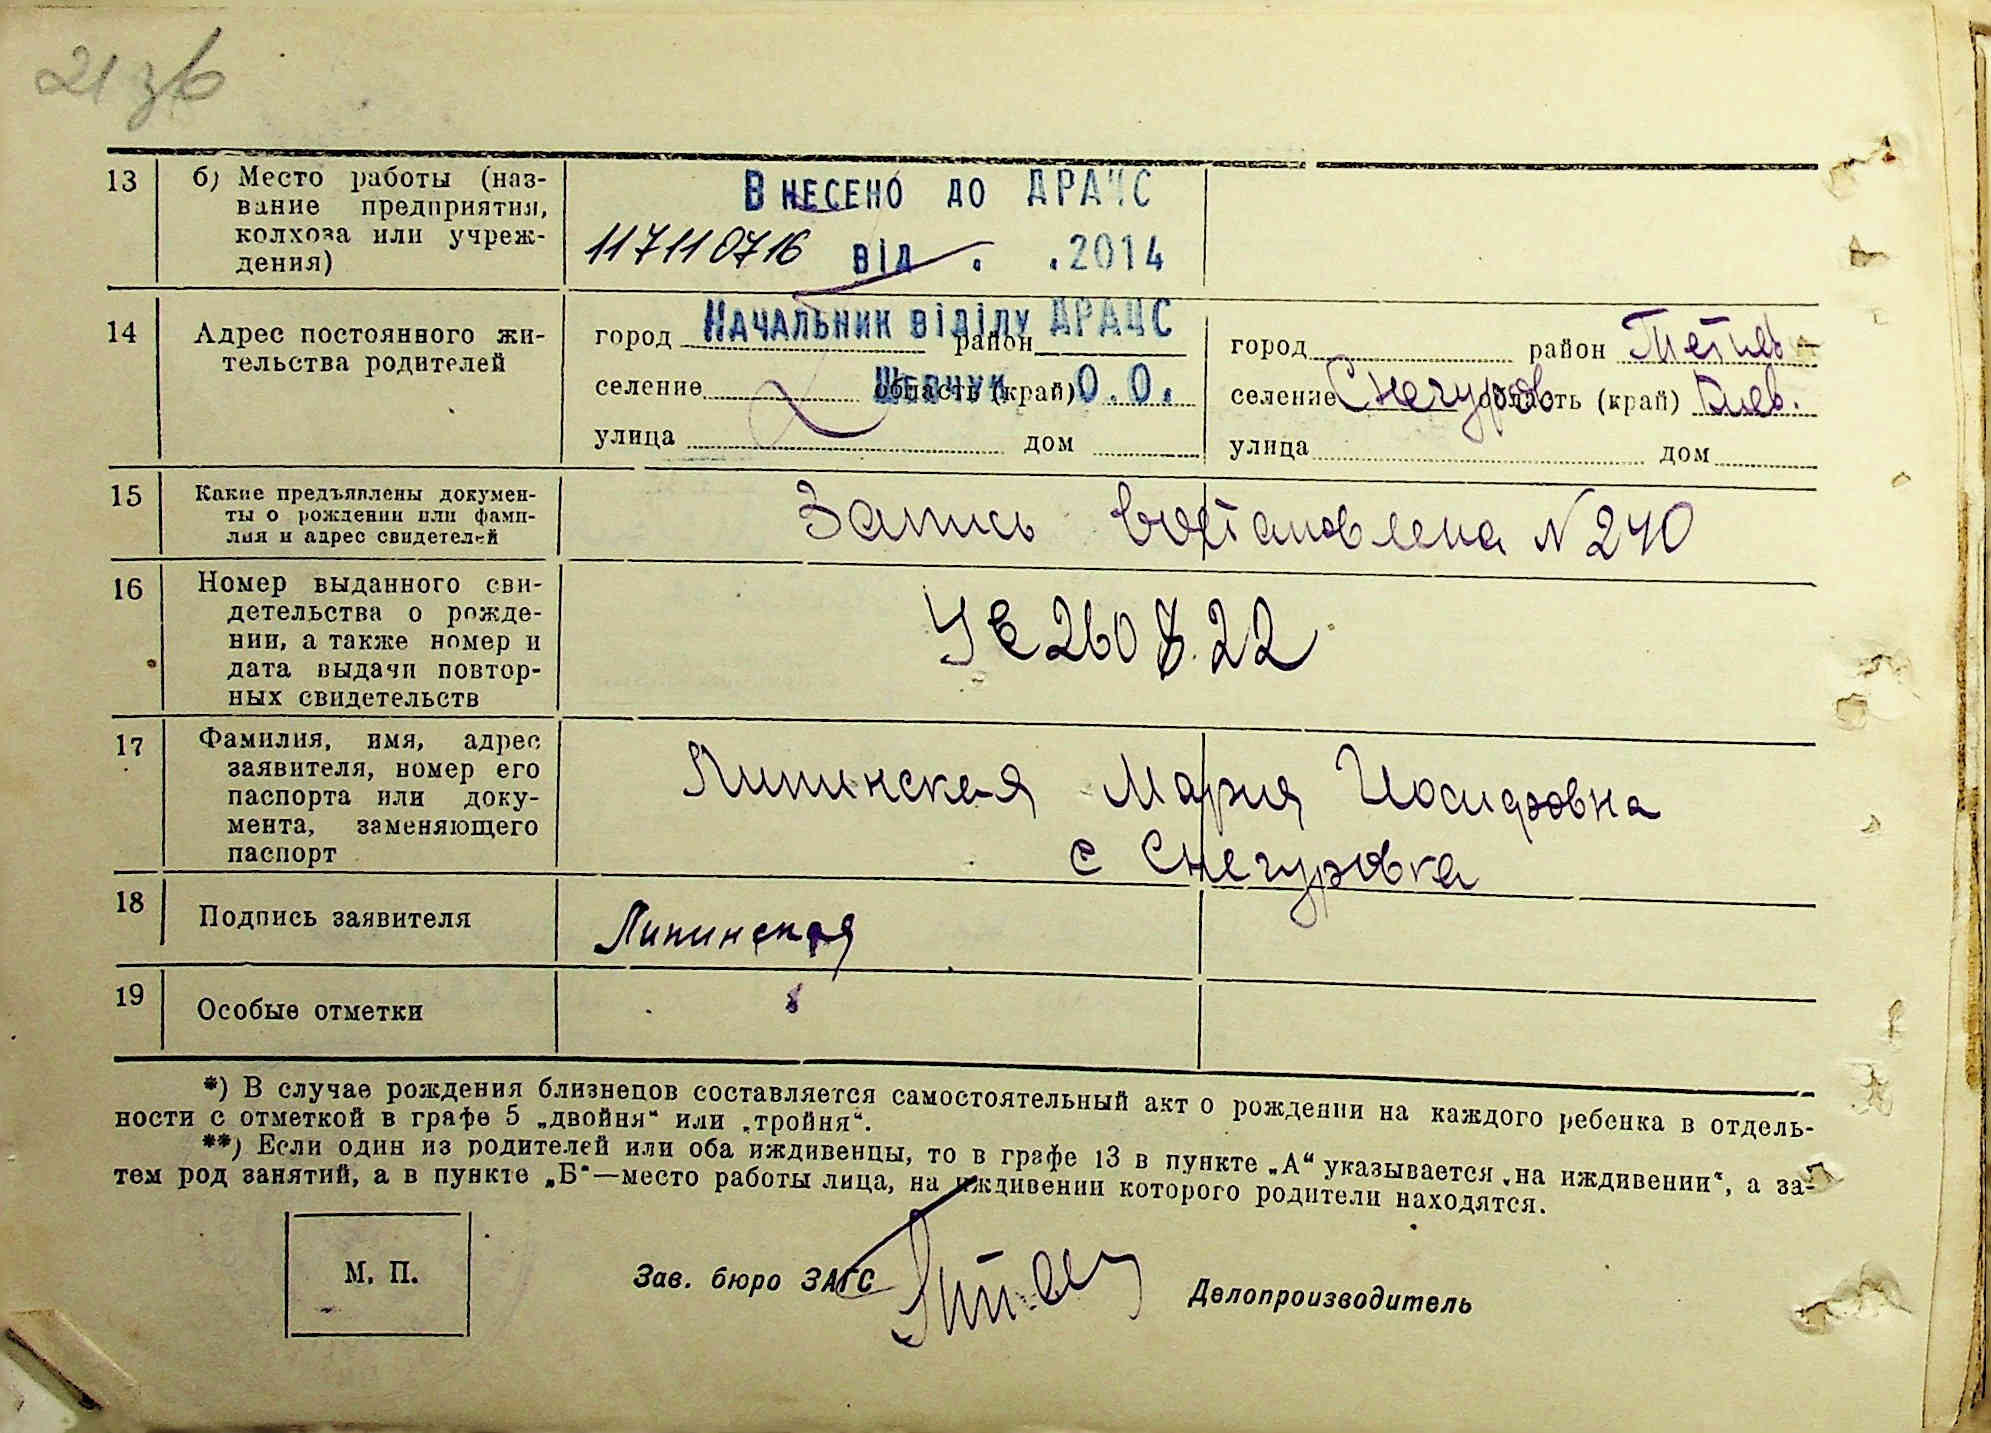 21 зв
13 б) Место работы (наз-
вание предприятия,
колхоза или учреж-
дения)
Внесено до ДРАЦС
117110716 від . .2014
14 Адрес постоянного жи-
тельства родителей
Начальник відділу ДРАЦС
Шевчук О.О.
город район
селение область (край)
улица дом
город район Тетиев
селение Снегуров. область (край) Киев.
улица дом
15 Какие предъявлены докумен-
ты о рождении или фами-
лия и адрес свидетелей
Запись востановлена N 240
16 Номер выданного сви-
детельства о рожде-
нии, а также номер и
дата выдачи повтор-
ных свидетельств
17 Фамилия, имя, адрес
заявителя, номер его
паспорта или доку-
мента, заменяющего
паспорт
Липинская Мария Иосифовна
с Снегуровка
18 Подпись заявителя
Липинская
19 Особые отметки
*) В случае рождения близнецов составляется самостоятельный акт о рождении на каждого ребенка в отдель-
ности с отметкой в графе 5 „двойня“ или „тройня“.
**) Если один из родителей или оба иждивенцы, то в графе 13 в пункте „А“ указывается „на иждивении“, а за-
тем род занятий, а в пункте „Б“—место работы лица, на иждивении которого родители находятся.
М. П.
Зав. бюро ЗАГС
Делопроизводитель